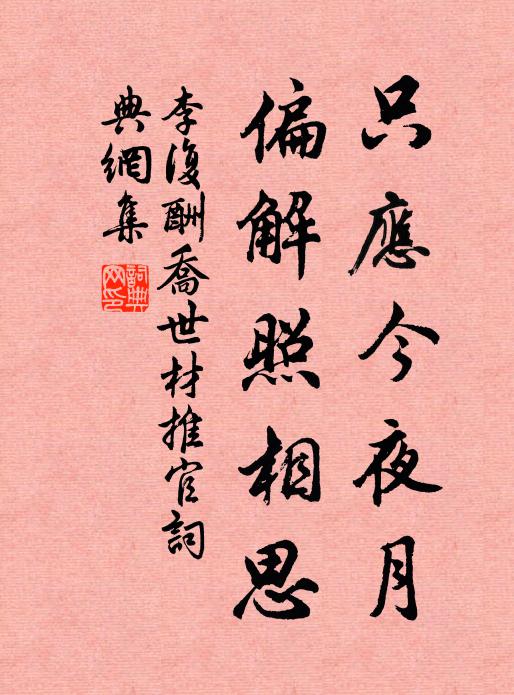 只應今夜月
偏解照相思
李復酬喬世材推官詞
典網集
詞典網印